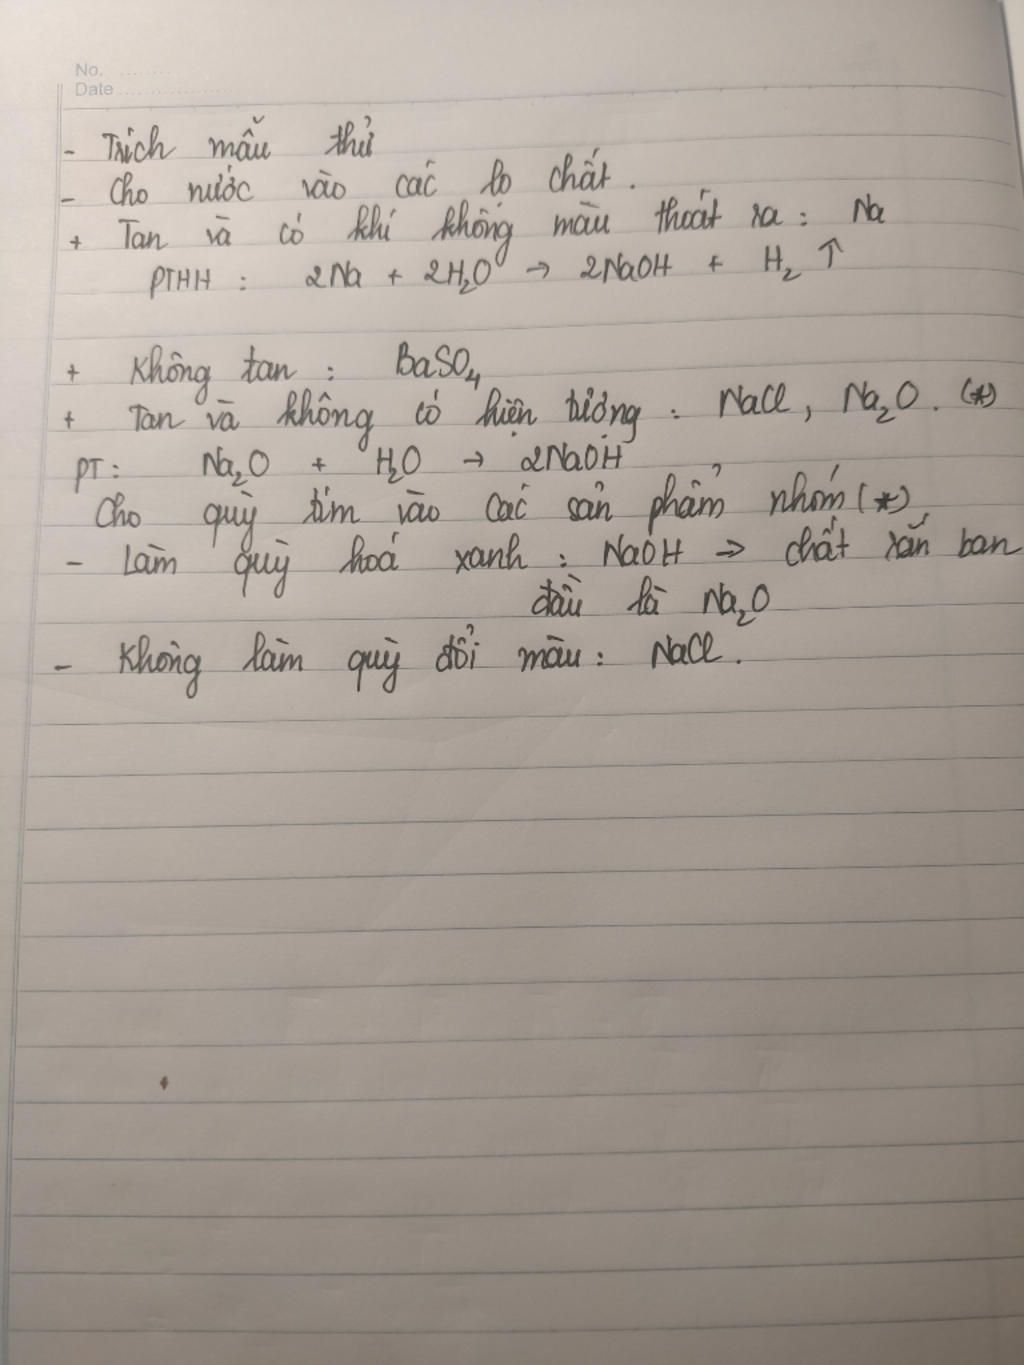 No. ........
Date ..................
- Trích mẫu thử
- Cho nước vào các lọ chất.
+ Tan và có khí không màu thoát ra: Na
PTHH: 2Na + 2H₂O → 2NaOH + H₂ ↑
+ Không tan: BaSO₄
+ Tan và không có hiện tượng: NaCl, Na₂O. (*)
PT: Na₂O + H₂O → 2NaOH
Cho quỳ tím vào các sản phẩm nhóm (*)
- Làm quỳ hoá xanh: NaOH => chất rắn ban
đầu là Na₂O
- Không làm quỳ đổi màu: NaCl.